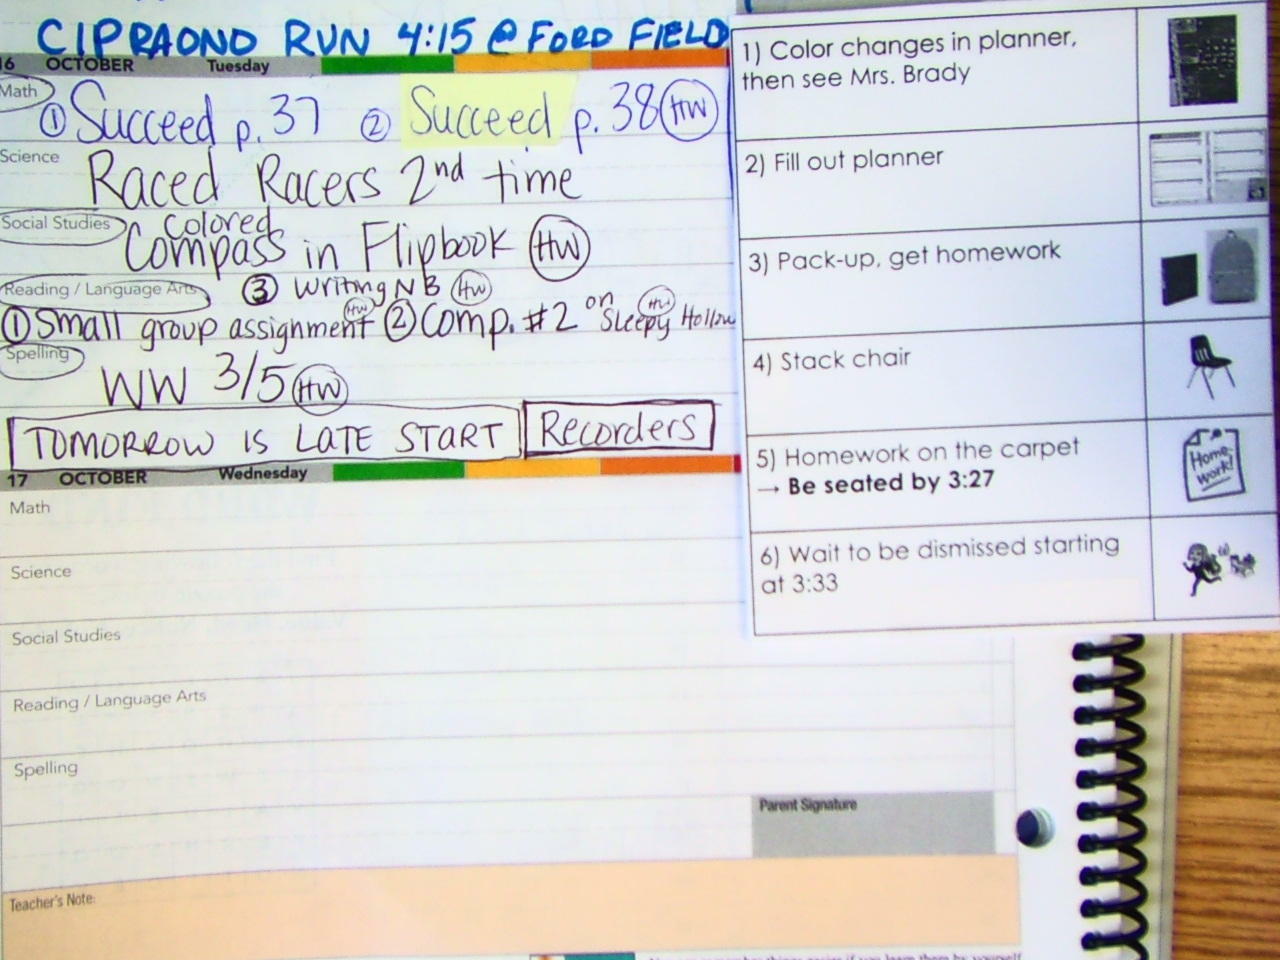 CIPRAOND RUN 4:15 @ FORD FIELD
16 OCTOBER Tuesday
Math
① Succeed p. 37 ② Succeed p. 38 HW
Science
Raced Racers 2nd time
Social Studies
colored
Compass in Flipbook HW
Reading / Language Arts ③ Writing NB HW
① Small group assignment HW ② Comp. #2 on Sleepy Hollow HW
Spelling
WW 3/5 HW
TOMORROW IS LATE START Recorders
17 OCTOBER Wednesday
Math
Science
Social Studies
Reading / Language Arts
Spelling
Parent Signature
Teacher's Note:
1) Color changes in planner,
then see Mrs. Brady
2) Fill out planner
3) Pack-up, get homework
4) Stack chair
5) Homework on the carpet
→ Be seated by 3:27
Home-
work!
6) Wait to be dismissed starting
at 3:33